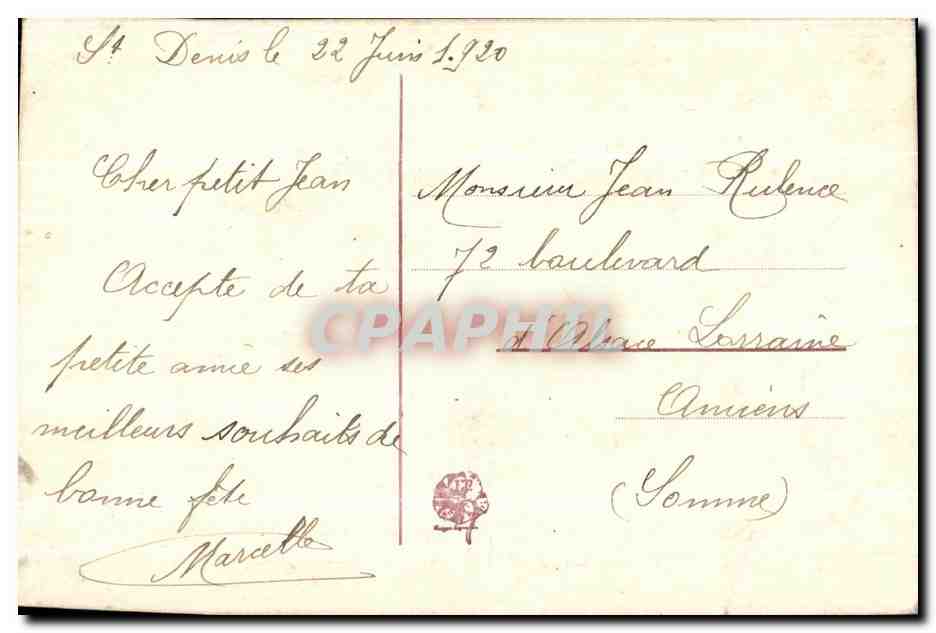 St Denis le 22 Juin 1.920
Cher petit Jean
Accepte de ta
petite amie ses
meilleurs souhaits de
bonne fête
Marcelle
Monsieur Jean Rulence
72 boulevard
d'Alsace Lorraine
Amiens
(Somme)
CPAPHIL